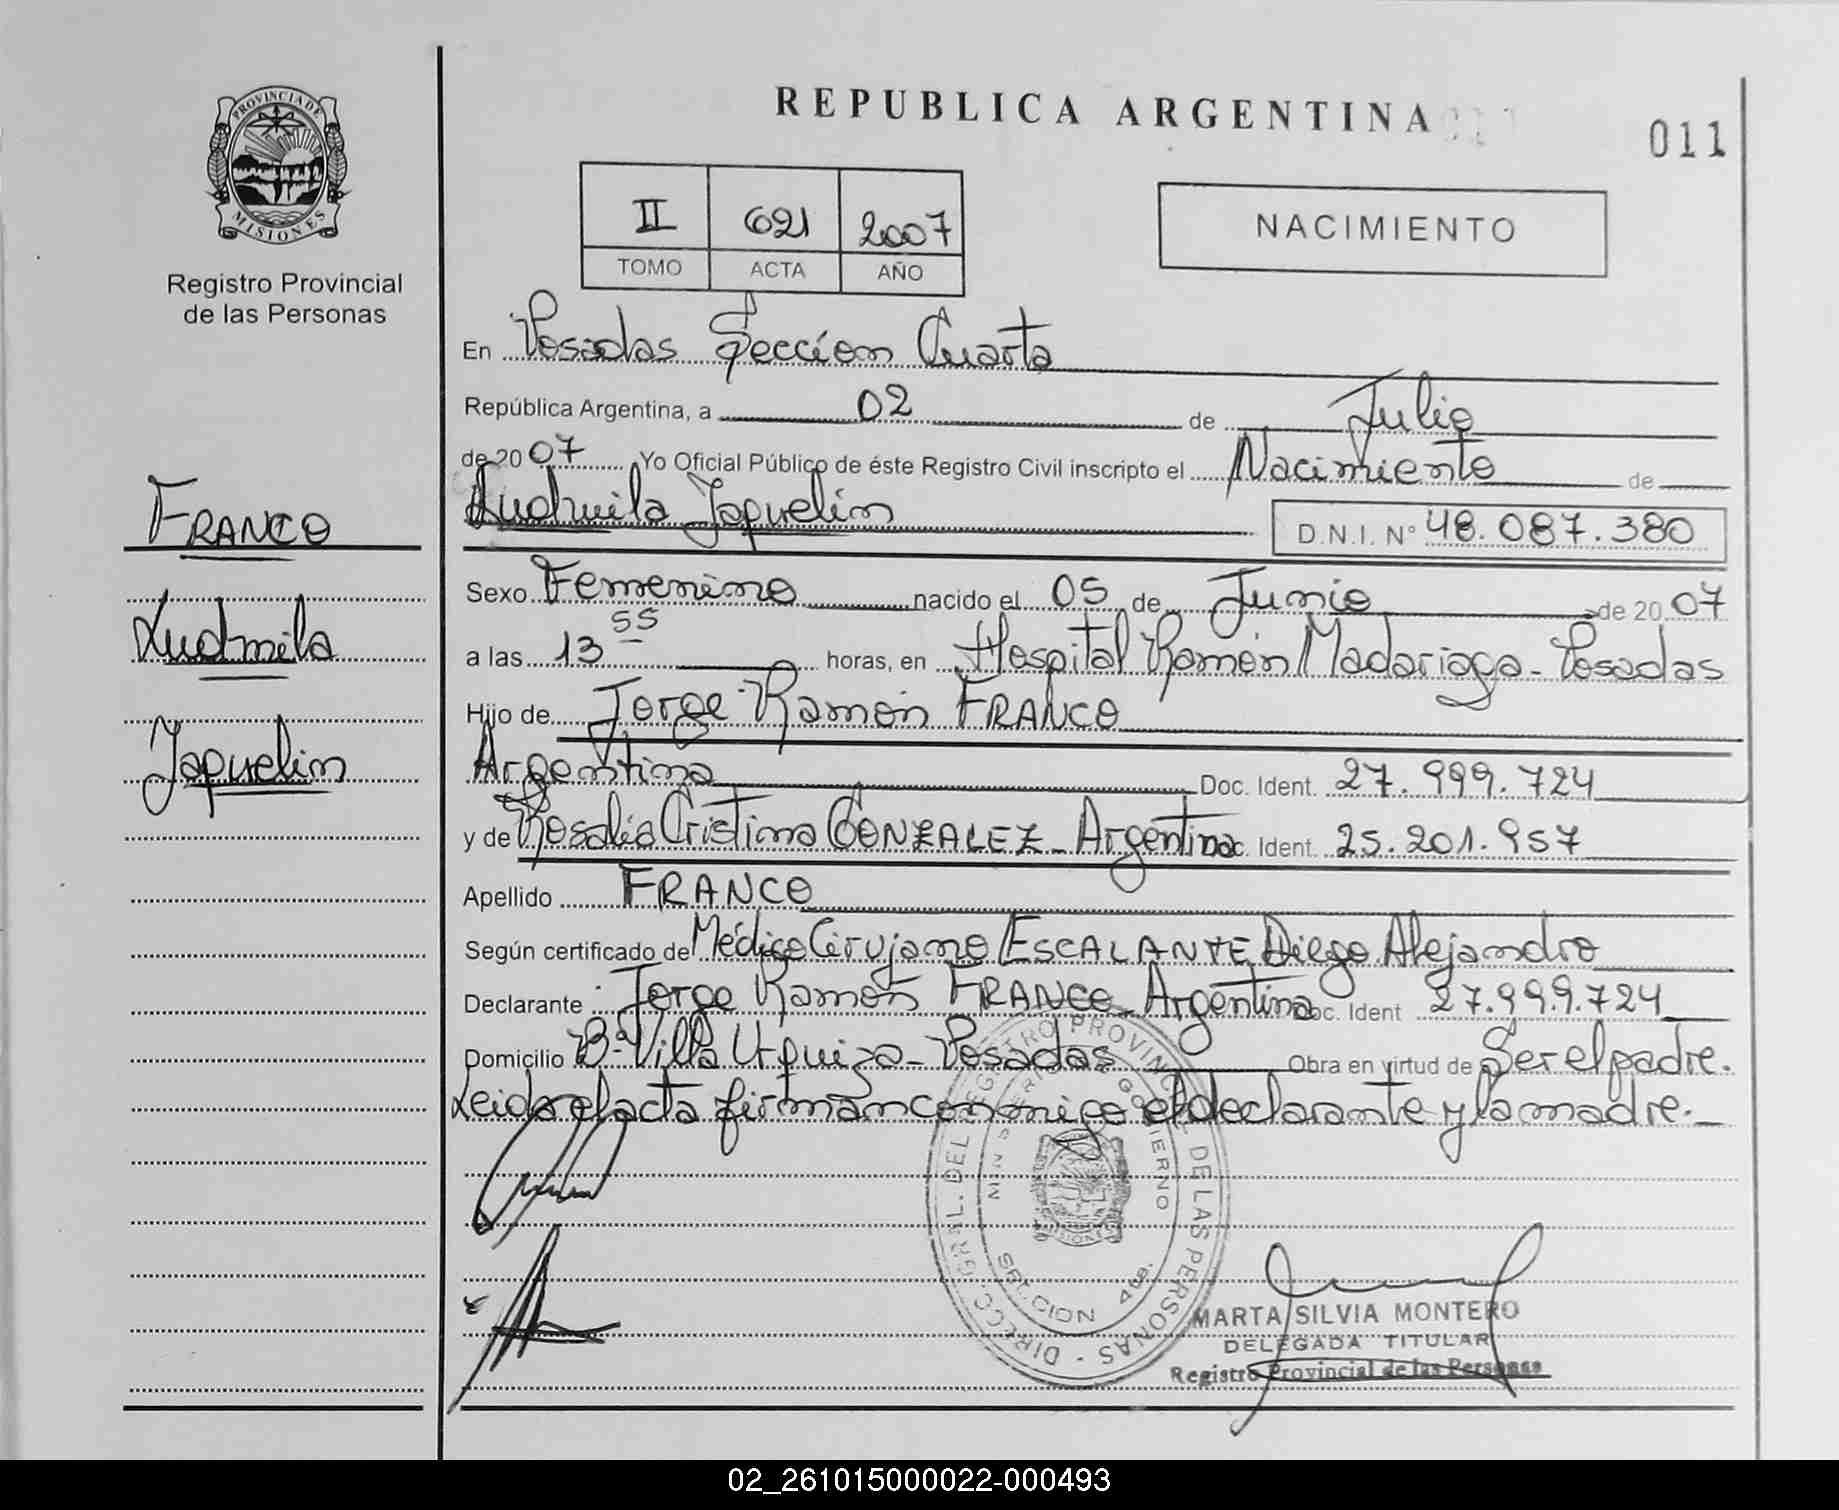 REPUBLICA ARGENTINA
011
PROVINCIA DE
MISIONES
Registro Provincial
de las Personas
II 621 2007
TOMO ACTA AÑO
NACIMIENTO
FRANCO
Ludmila
Jaquelin
En Posadas Sección Cuarta
República Argentina, a 02 de Julio
de 20 07 Yo Oficial Público de éste Registro Civil inscripto el Nacimiento de
Ludmila Jaquelin D.N.I. N° 48.087.380
Sexo Femenino nacido el 05 de Junio de 20 07
a las 13 55 horas, en Hospital Ramón Madariaga - Posadas
Hijo de Jorge Ramón FRANCO
Argentino Doc. Ident. 27.999.724
y de Rosalia Cristina GONZALEZ - Argentina Doc. Ident. 25.201.957
Apellido FRANCO
Según certificado de Médico Cirujano ESCALANTE Diego Alejandro
Declarante Jorge Ramón FRANCO Argentino Doc. Ident 27.999.724
Domicilio B° Villa Urquiza - Posadas Obra en virtud de Ser el padre.
Leida el acta firman conmigo el declarante y la madre. -
DIRECC. GRAL. DEL REGISTRO PROVINC. DE LAS PERSONAS -
MINISTERIO DE GOBIERNO
MISIONES
SECCION 4ta.
MARTA SILVIA MONTERO
DELEGADA TITULAR
Registro Provincial de las Personas
02_261015000022-000493